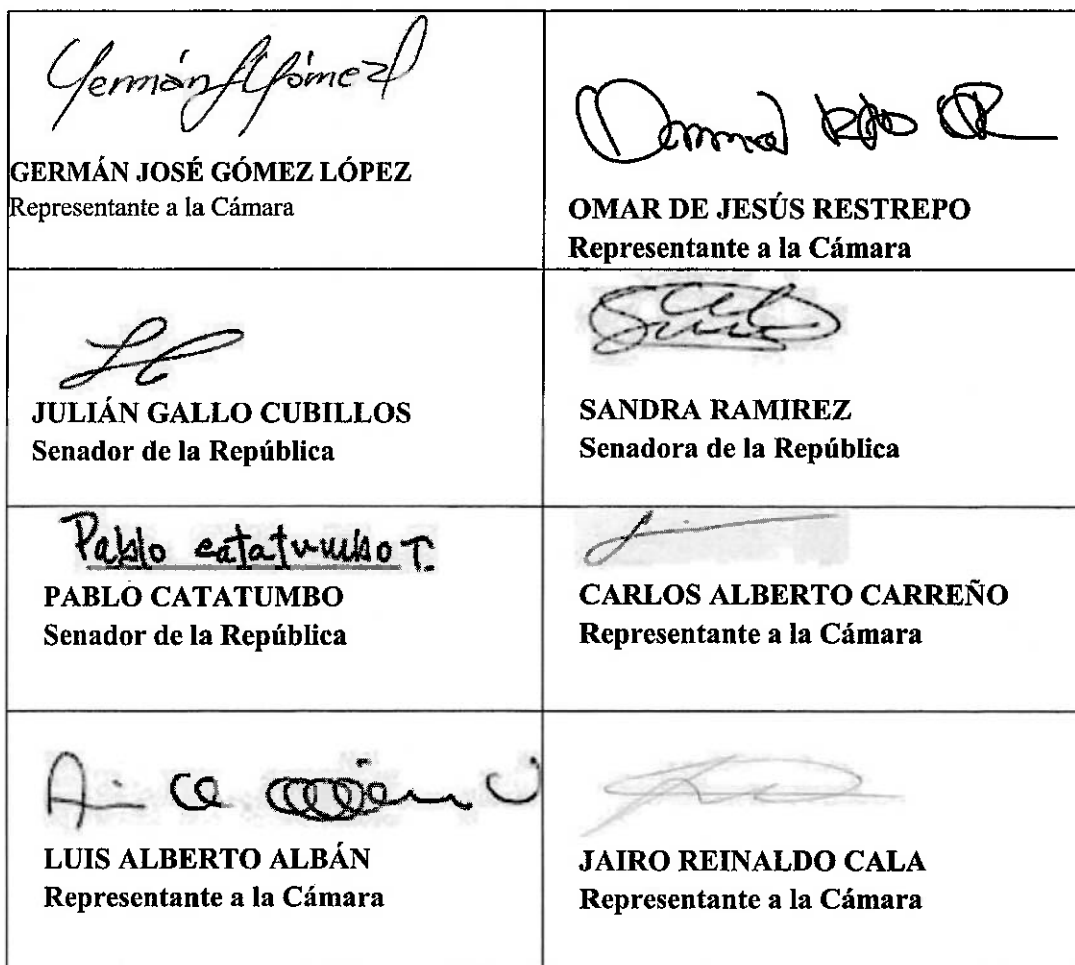 Germán J Gómez L
GERMÁN JOSÉ GÓMEZ LÓPEZ
Representante a la Cámara
OMAR DE JESÚS RESTREPO
Representante a la Cámara
JULIÁN GALLO CUBILLOS
Senador de la República
SANDRA RAMIREZ
Senadora de la República
Pablo catatumbo T.
PABLO CATATUMBO
Senador de la República
CARLOS ALBERTO CARREÑO
Representante a la Cámara
LUIS ALBERTO ALBÁN
Representante a la Cámara
JAIRO REINALDO CALA
Representante a la Cámara